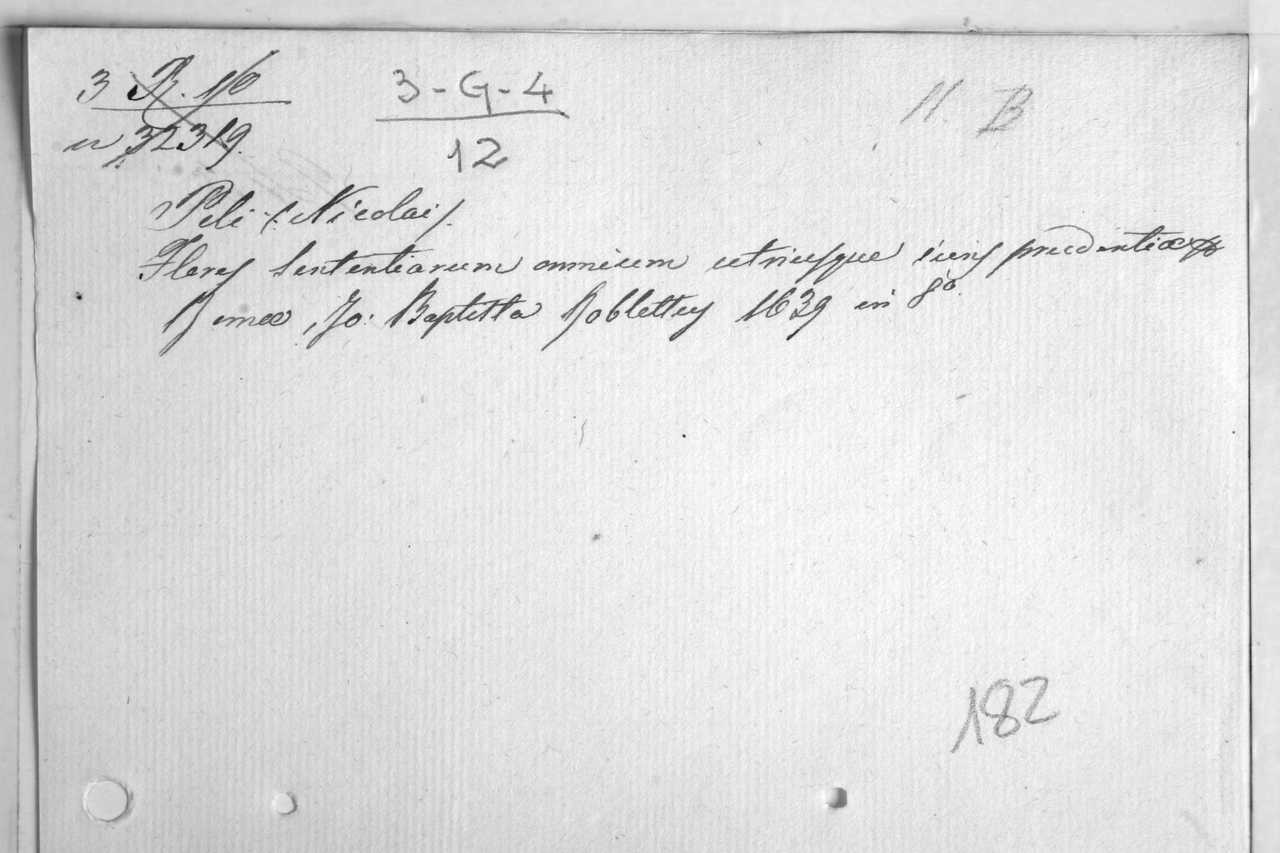 3 R. 16
n 32319.
3-G-4
12
11. B
Peli (: Nicolai).
Flores Sententiarum omnium utriusque iuris prudentiæ
Romæ, Jo: Baptista Roblettus 1639 in 8º
182